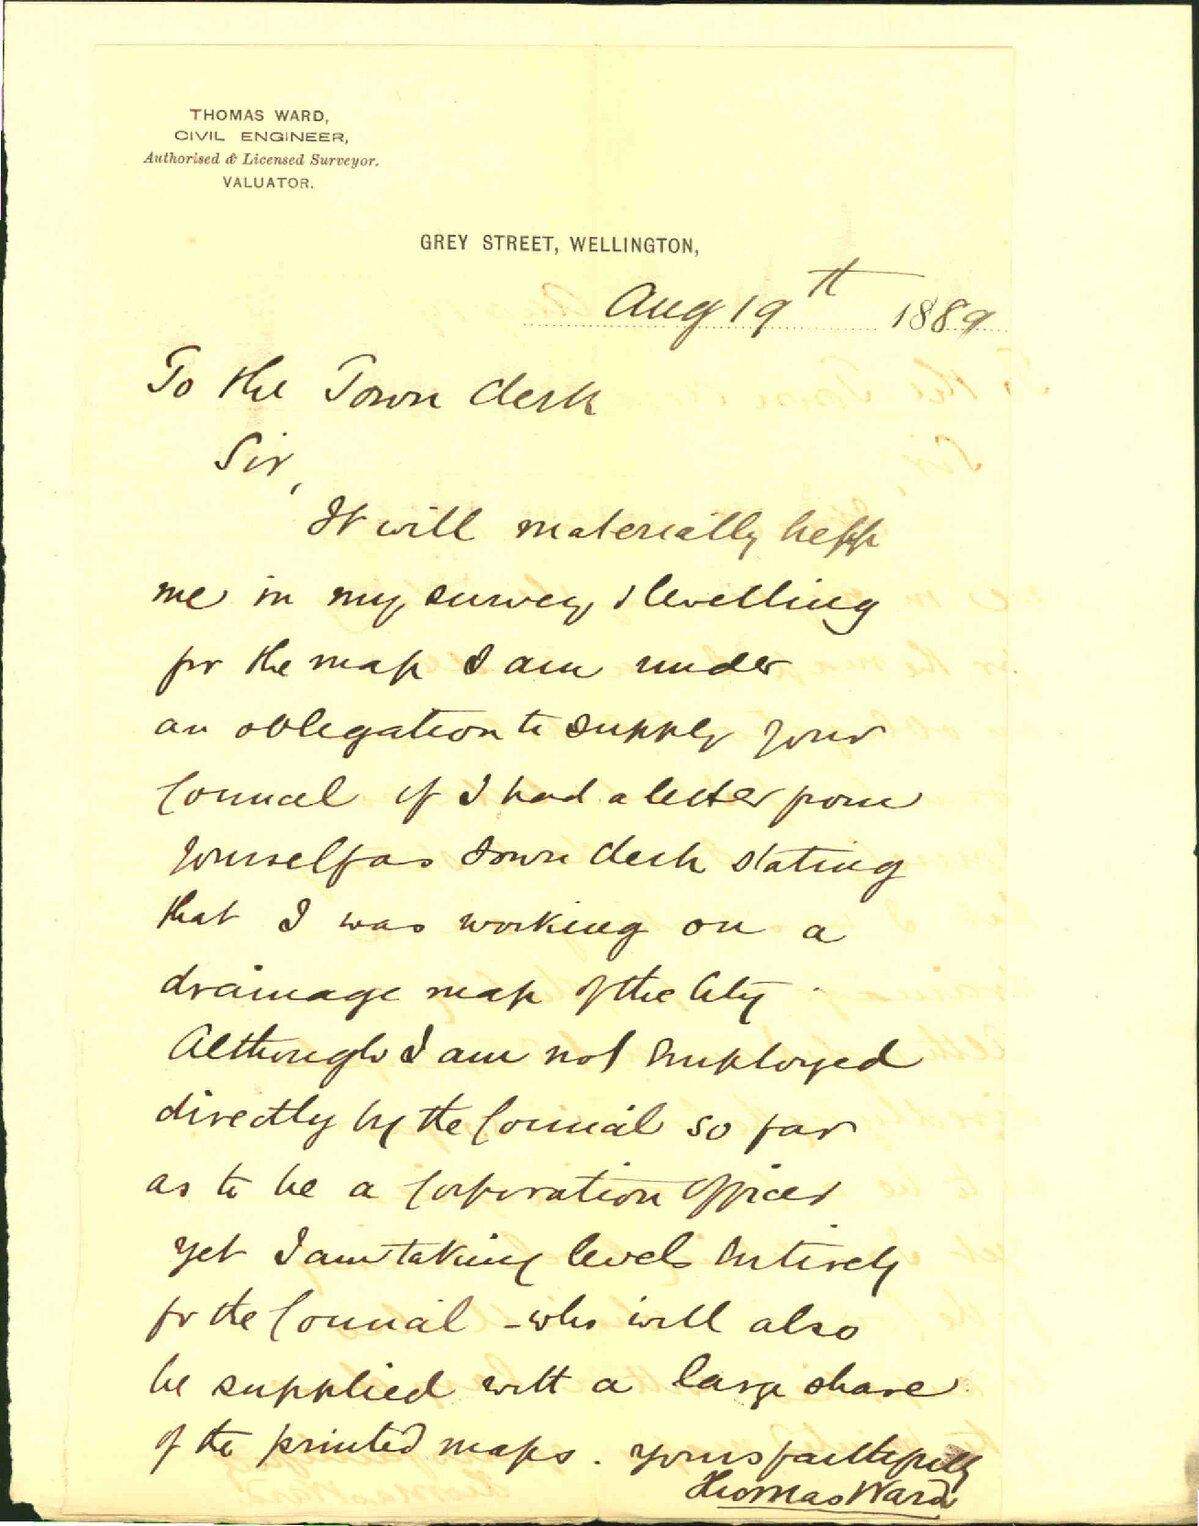 THOMAS WARD,
CIVIL ENGINEER,
Authorised & Licensed Surveyor.
VALUATOR.
GREY STREET, WELLINGTON,
Aug 19th 1889
To the Town Clerk
Sir,
It will materially help
me in my survey & levelling
for the map I am under
an obligation to supply your
Council if I had a letter from
yourself as Town Clerk stating
that I was working on a
drainage map of the City
Although I am not employed
directly by the Council so far
as to be a Corporation Officer
yet I am taking levels entirely
for the Council - who will also
be supplied with a large share
of the printed maps. Yours faithfully
Thomas Ward